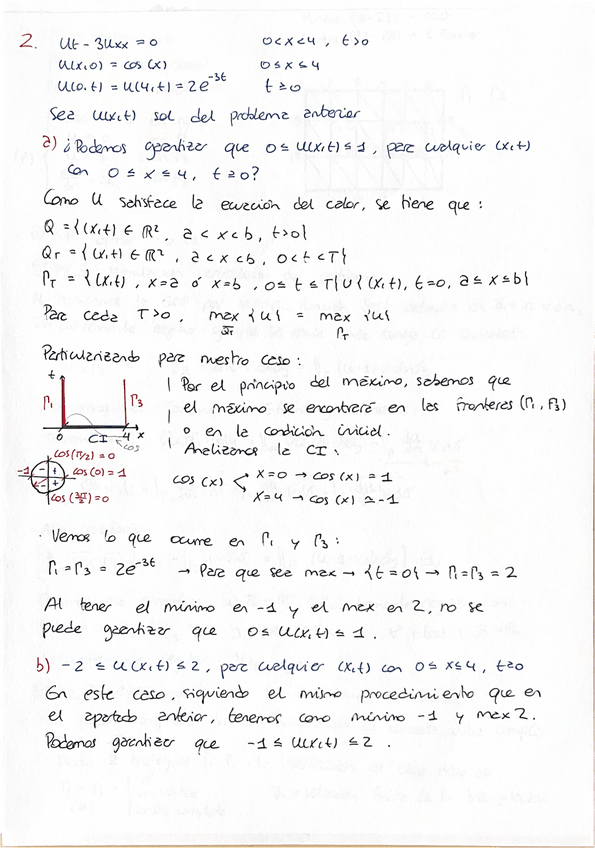 2. Ut - 3Uxx = 0 0 < x < 4 , t > 0
U(x,0) = cos (x) 0 ≤ x ≤ 4
U(0,t) = U(4,t) = 2e^-3t t ≥ 0
Sea U(x,t) sol del problema anterior
a) ¿Podemos garantizar que 0 ≤ U(x,t) ≤ 1, para cualquier (x,t)
con 0 ≤ x ≤ 4, t ≥ 0?
Como U satisface la ecuación del calor, se tiene que :
Q = {(x,t) ∈ ℝ², a < x < b, t > 0}
QT = {(x,t) ∈ ℝ², a < x < b, 0 < t < T}
ΓT = {(x,t), x=a ó x=b, 0 ≤ t ≤ T} ∪ {(x,t), t=0, a ≤ x ≤ b}
Para cada T>0, max {u} = max {u}
ΓT
Particularizando para nuestro caso :
t
Γ1
Γ3
0 CI 4 x
cos
Por el principio del máximo, sabemos que
el máximo se encontrará en las fronteras (Γ1, Γ3)
o en la condición inicial.
Analizamos la CI :
cos (x) x=0 → cos (x) = 1
x=4 → cos (x) ≃ -1
cos(π/2) = 0
-1 - + cos(0) = 1
- +
cos(3π/2) = 0
· Vemos lo que ocurre en Γ1 y Γ3 :
Γ1 = Γ3 = 2e^-3t → Para que sea max → {t=0} → Γ1=Γ3 = 2
Al tener el mínimo en -1 y el max en 2, no se
puede garantizar que 0 ≤ U(x,t) ≤ 1.
b) -2 ≤ U(x,t) ≤ 2, para cualquier (x,t) con 0 ≤ x ≤ 4, t ≥ 0
En este caso, siguiendo el mismo procedimiento que en
el apartado anterior, tenemos como mínimo -1 y max 2.
Podemos garantizar que -1 ≤ U(x,t) ≤ 2.